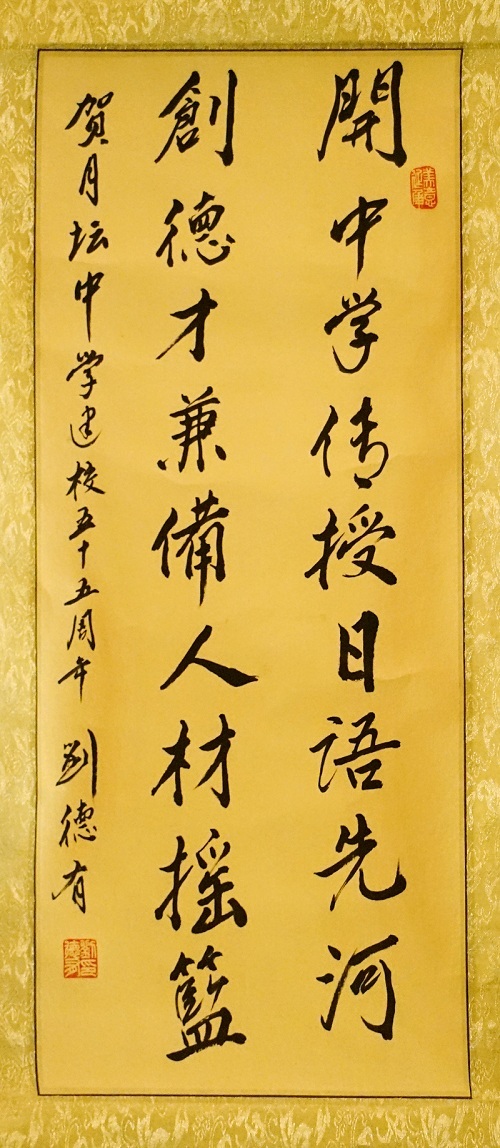 開中学传授日語先河
創德才兼備人材摇籃
贺月坛中学建校五十五周年 刘德有